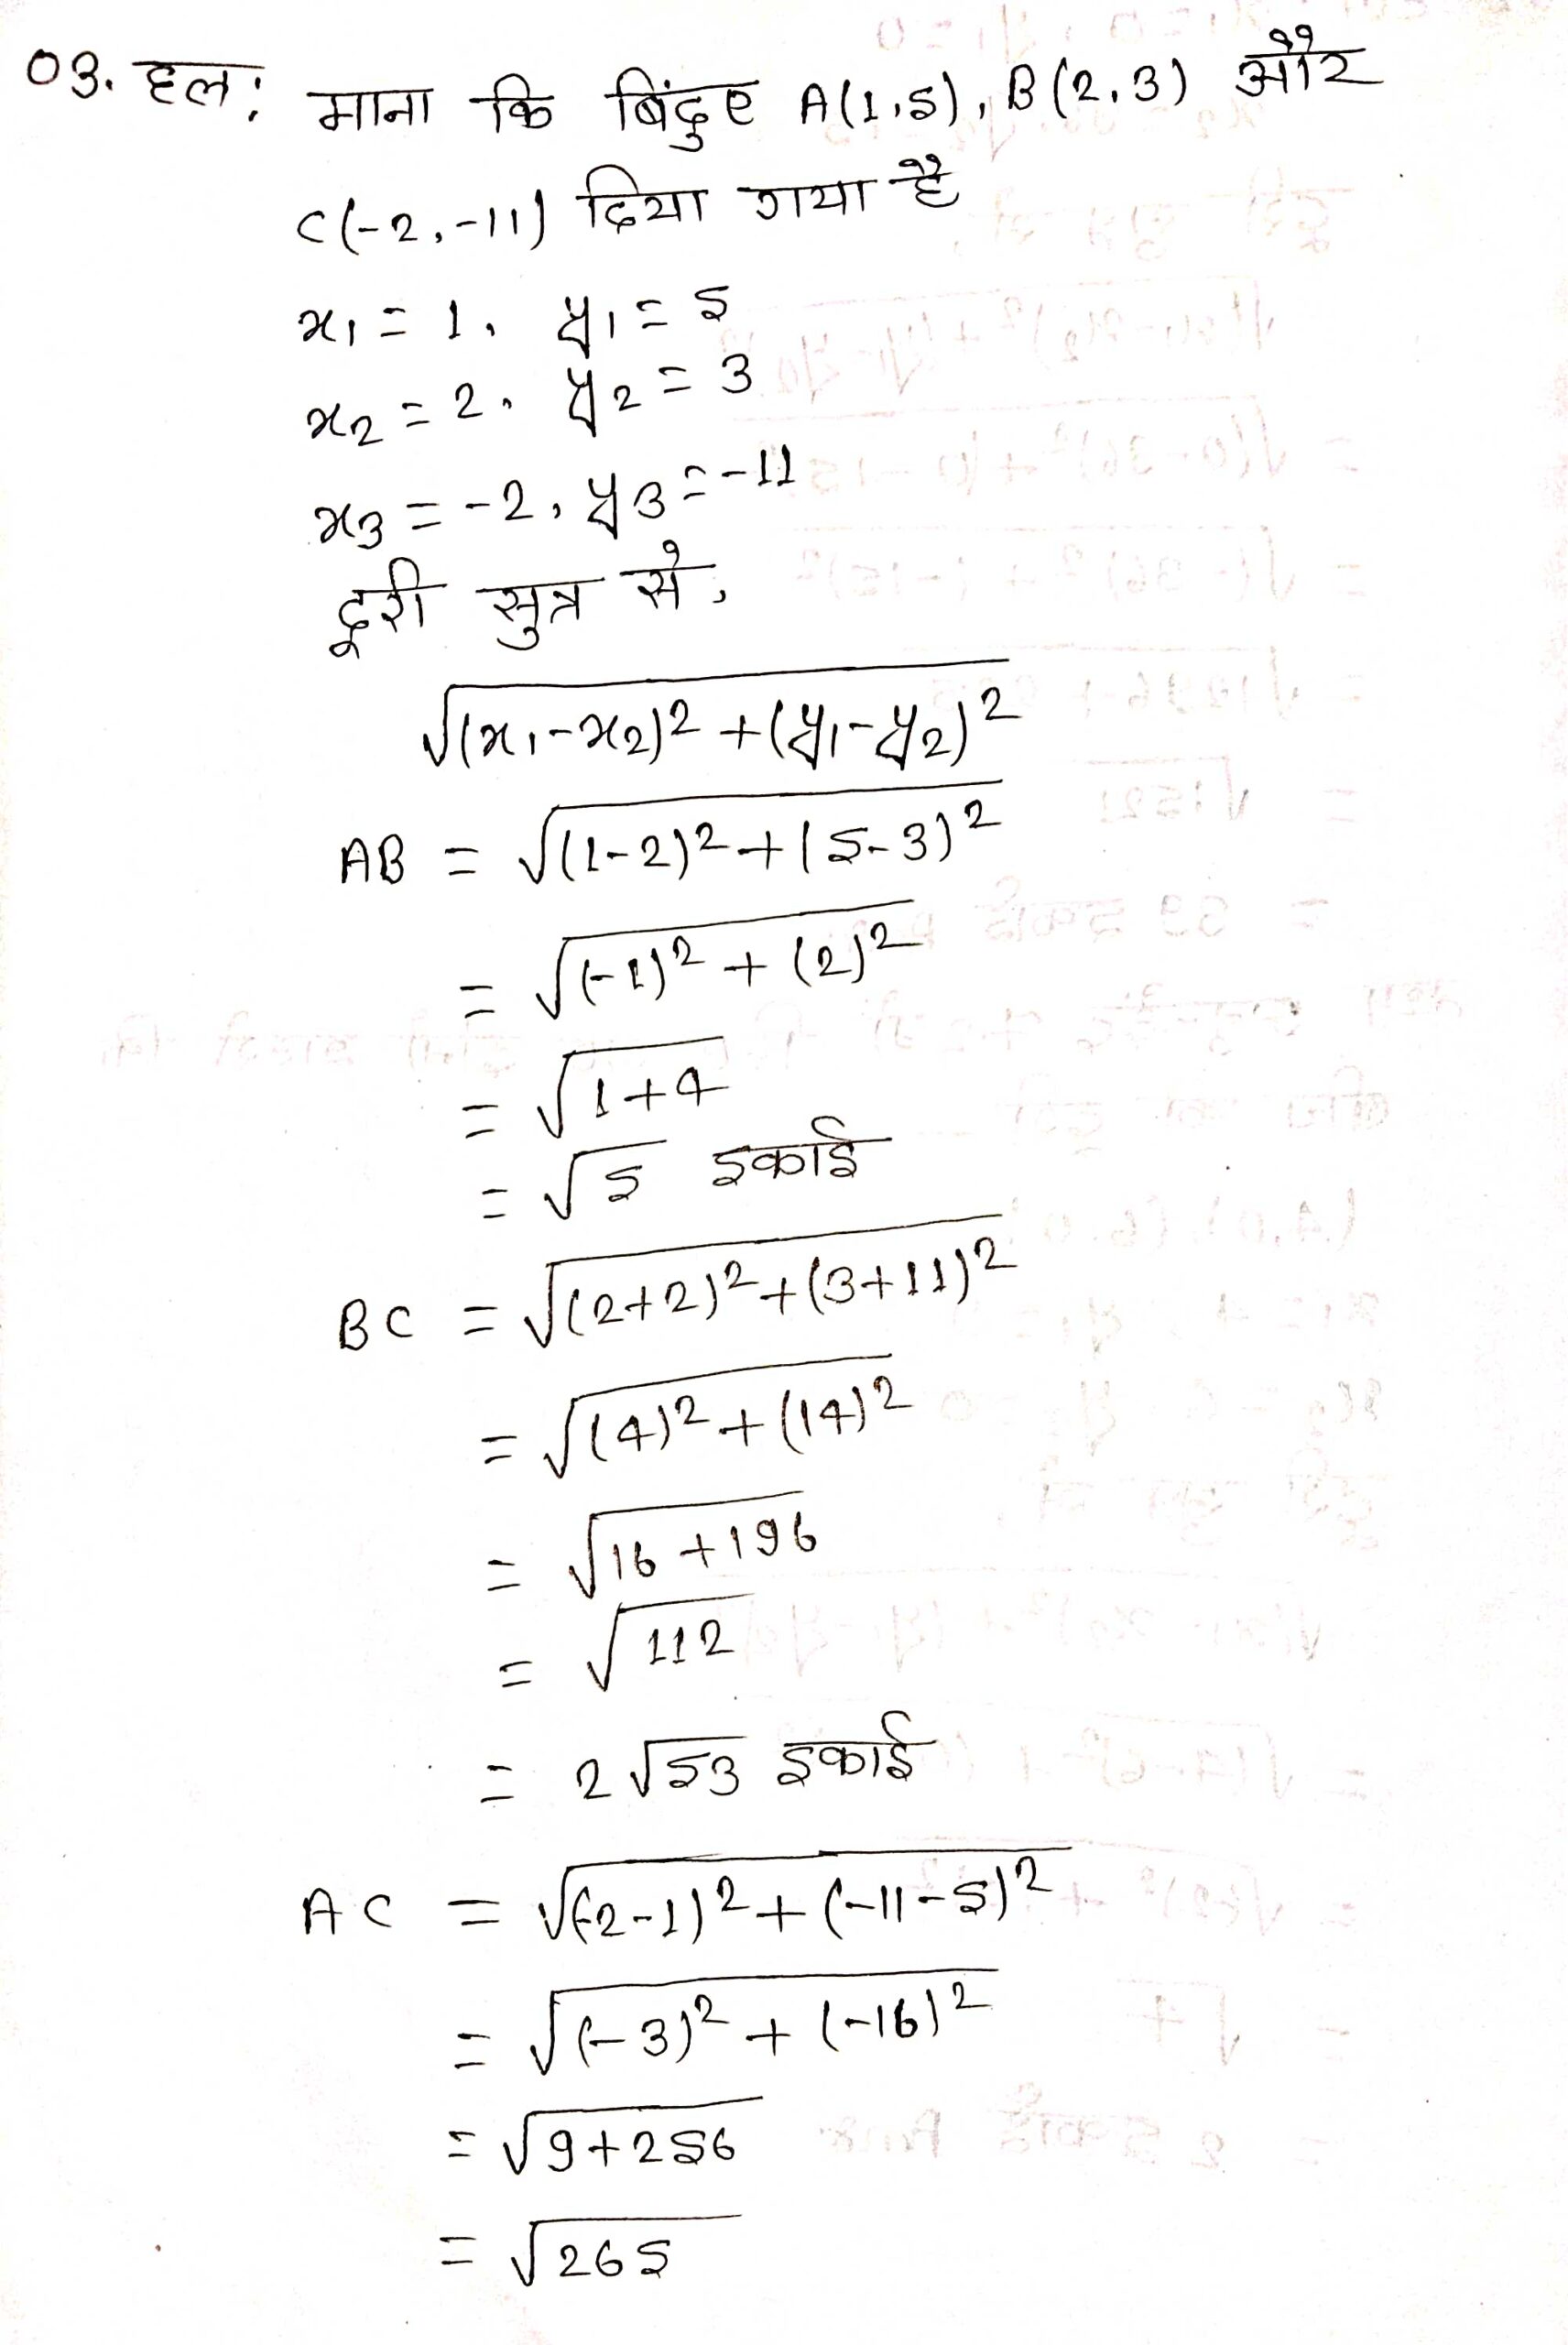 03. हल: माना कि बिंदुए A(1,5), B(2,3) और
C(-2,-11) दिया गया है
x₁ = 1, y₁ = 5
x₂ = 2, y₂ = 3
x₃ = -2, y₃ = -11
दूरी सुत्र से,
√(x₁-x₂)² + (y₁-y₂)²
AB = √(1-2)² + (5-3)²
= √(-1)² + (2)²
= √1+4
= √5 इकाई
BC = √(2+2)² + (3+11)²
= √(4)² + (14)²
= √16+196
= √112
= 2√53 इकाई
AC = √(-2-1)² + (-11-5)²
= √(-3)² + (-16)²
= √9+256
= √265